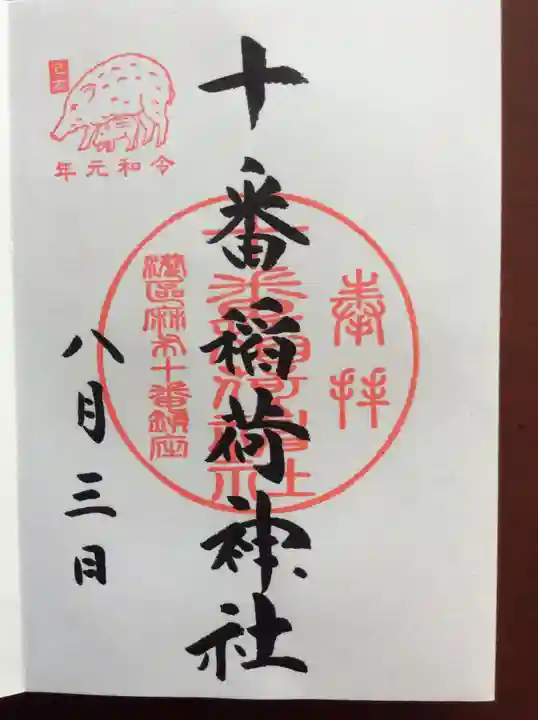 奉拝
十番稲荷神社
十番稲荷神社
港區麻布十番鎮座
八月三日
己亥
令和元年